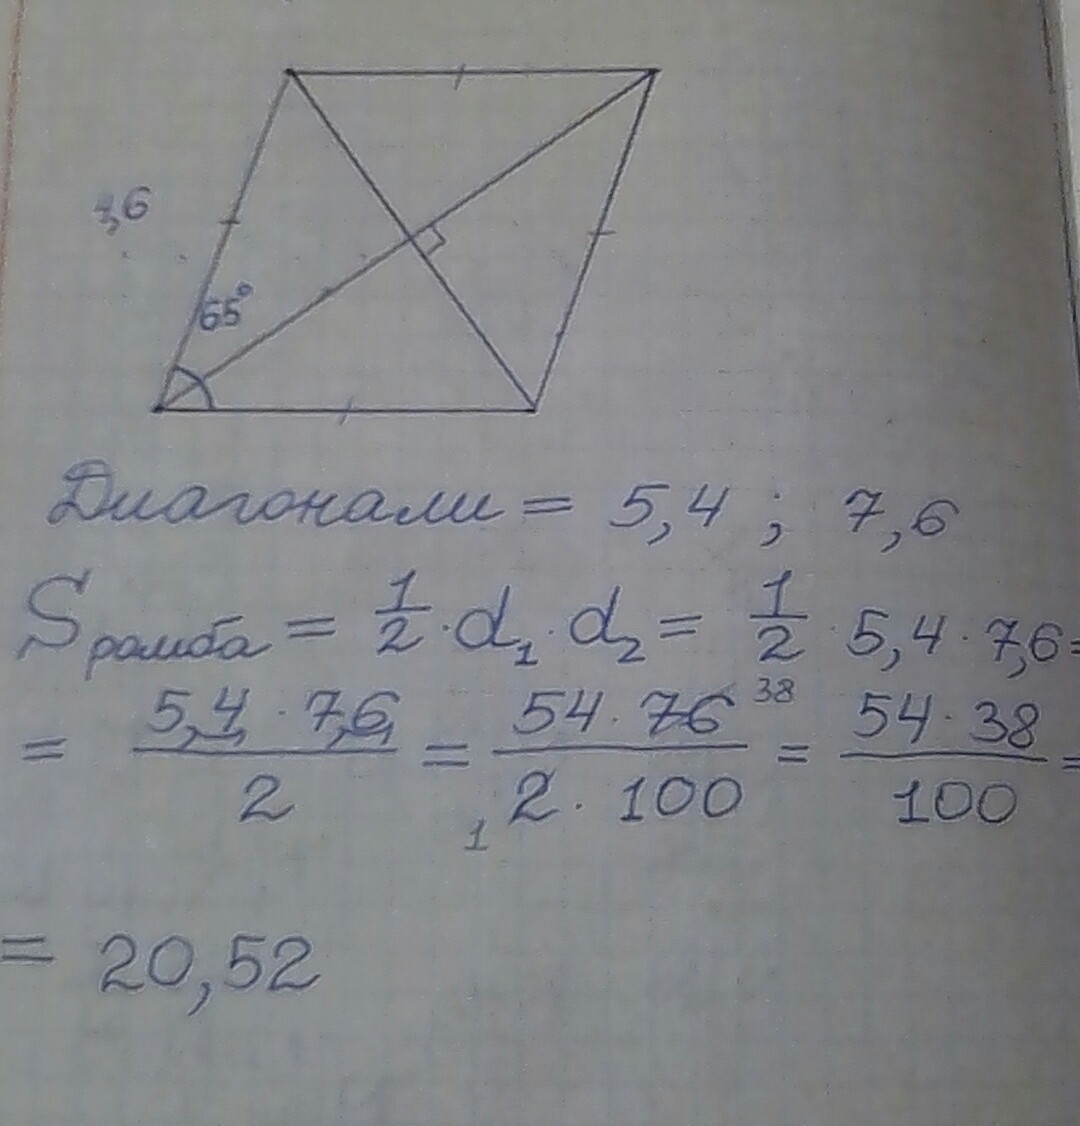 4,6
65°
Диагонали = 5,4 ; 7,6
S ромба = 1/2 · d₁ · d₂ = 1/2 · 5,4 · 7,6 =
= 5,4 · 7,6 / 2 = 54 · 76 38 / 1 2 · 100 = 54 · 38 / 100 =
= 20,52